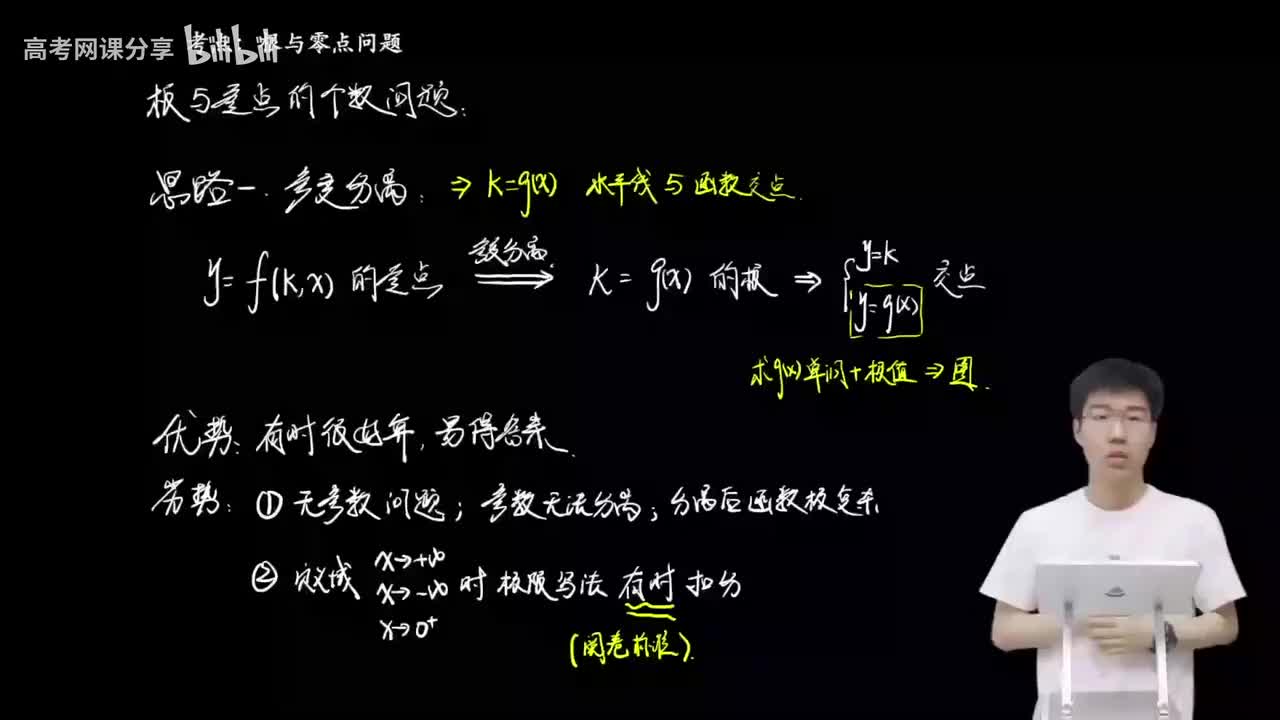 高考网课分享 bilibili
考点:根与零点问题
根与零点的个数问题:
思路一.参变分离: ⇒ k=g(x) 水平线与函数交点.
y=f(k,x) 的零点 参变分离 ⟹ k=g(x) 的根 ⇒ { y=k y=g(x) 交点
求g(x)单调+极值⇒图.
优势:有时很好算,易得答案.
劣势:①无参数问题;参数无法分离;分离后函数极复杂
②定义域 x→+∞ x→-∞ x→0⁺ 时极限写法有时扣分
(阅卷标准).